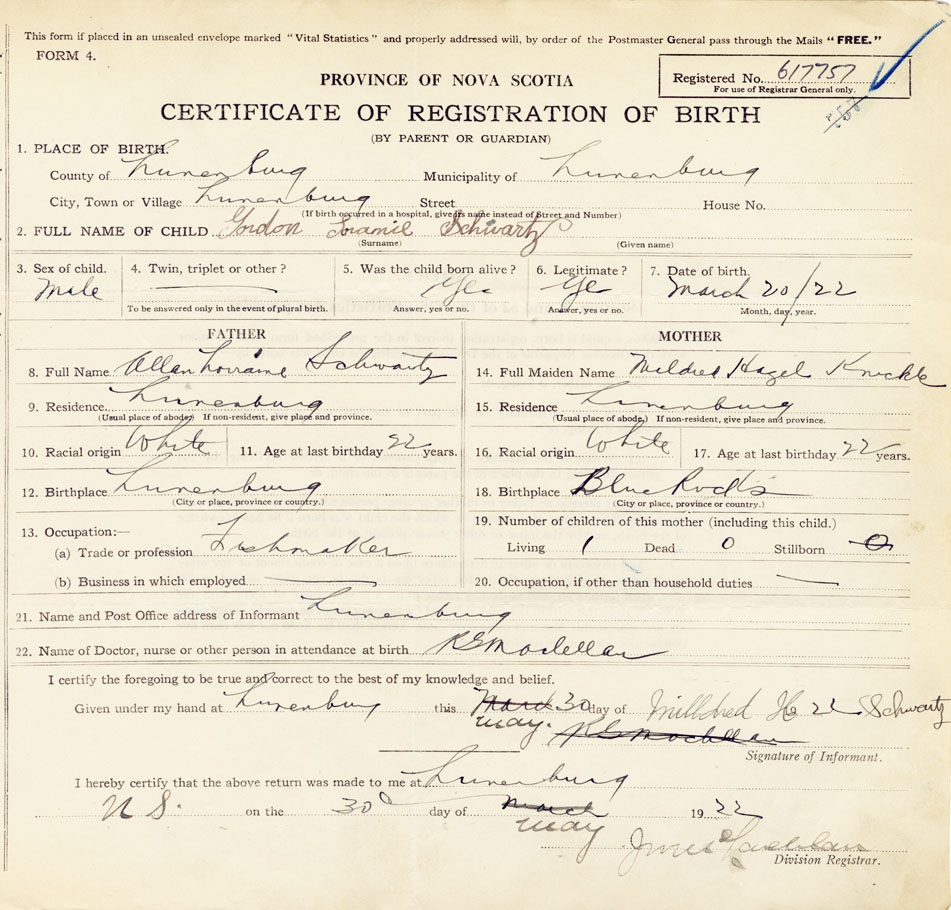 This form if placed in an unsealed envelope marked "Vital Statistics" and properly addressed will, by order of the Postmaster General pass through the Mails "FREE."
FORM 4.
PROVINCE OF NOVA SCOTIA
Registered No. 617757
For use of Registrar General only.
CERTIFICATE OF REGISTRATION OF BIRTH
(BY PARENT OR GUARDIAN)
1. PLACE OF BIRTH.
County of Lunenburg Municipality of Lunenburg
City, Town or Village Lunenburg Street House No.
(If birth occurred in a hospital, give its name instead of Street and Number)
2. FULL NAME OF CHILD Gordon Loramie Schwartz
(Surname) (Given name)
3. Sex of child. 4. Twin, triplet or other? 5. Was the child born alive? 6. Legitimate? 7. Date of birth.
Male Yes Ye March 20/22
To be answered only in the event of plural birth. Answer, yes or no. Answer, yes or no. Month, day, year.
FATHER
8. Full Name Allan Lorraine Schwartz
9. Residence Lunenburg
(Usual place of abode) If non-resident, give place and province.
10. Racial origin White 11. Age at last birthday 22 years.
12. Birthplace Lunenburg
(City or place, province or country.)
13. Occupation:—
(a) Trade or profession Fishmaker
(b) Business in which employed
MOTHER
14. Full Maiden Name Mildred Hazel Knickle
15. Residence Lunenburg
(Usual place of abode.) If non-resident, give place and province.
16. Racial origin White 17. Age at last birthday 22 years.
18. Birthplace Blue Rocks
(City or place, province or country.)
19. Number of children of this mother (including this child.)
Living 1 Dead 0 Stillborn 0
20. Occupation, if other than household duties
21. Name and Post Office address of Informant Lunenburg
22. Name of Doctor, nurse or other person in attendance at birth
I certify the foregoing to be true and correct to the best of my knowledge and belief.
Given under my hand at Lunenburg this March 30 day of Milldred Schwartz
May.
Signature of Informant.
I hereby certify that the above return was made to me at Lunenburg
N S. on the 30 day of March 1922
May
Division Registrar.